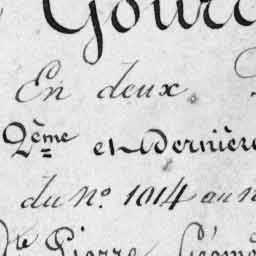 En deux.
2ème et Dernière
du n° 1014 au n
Pierre